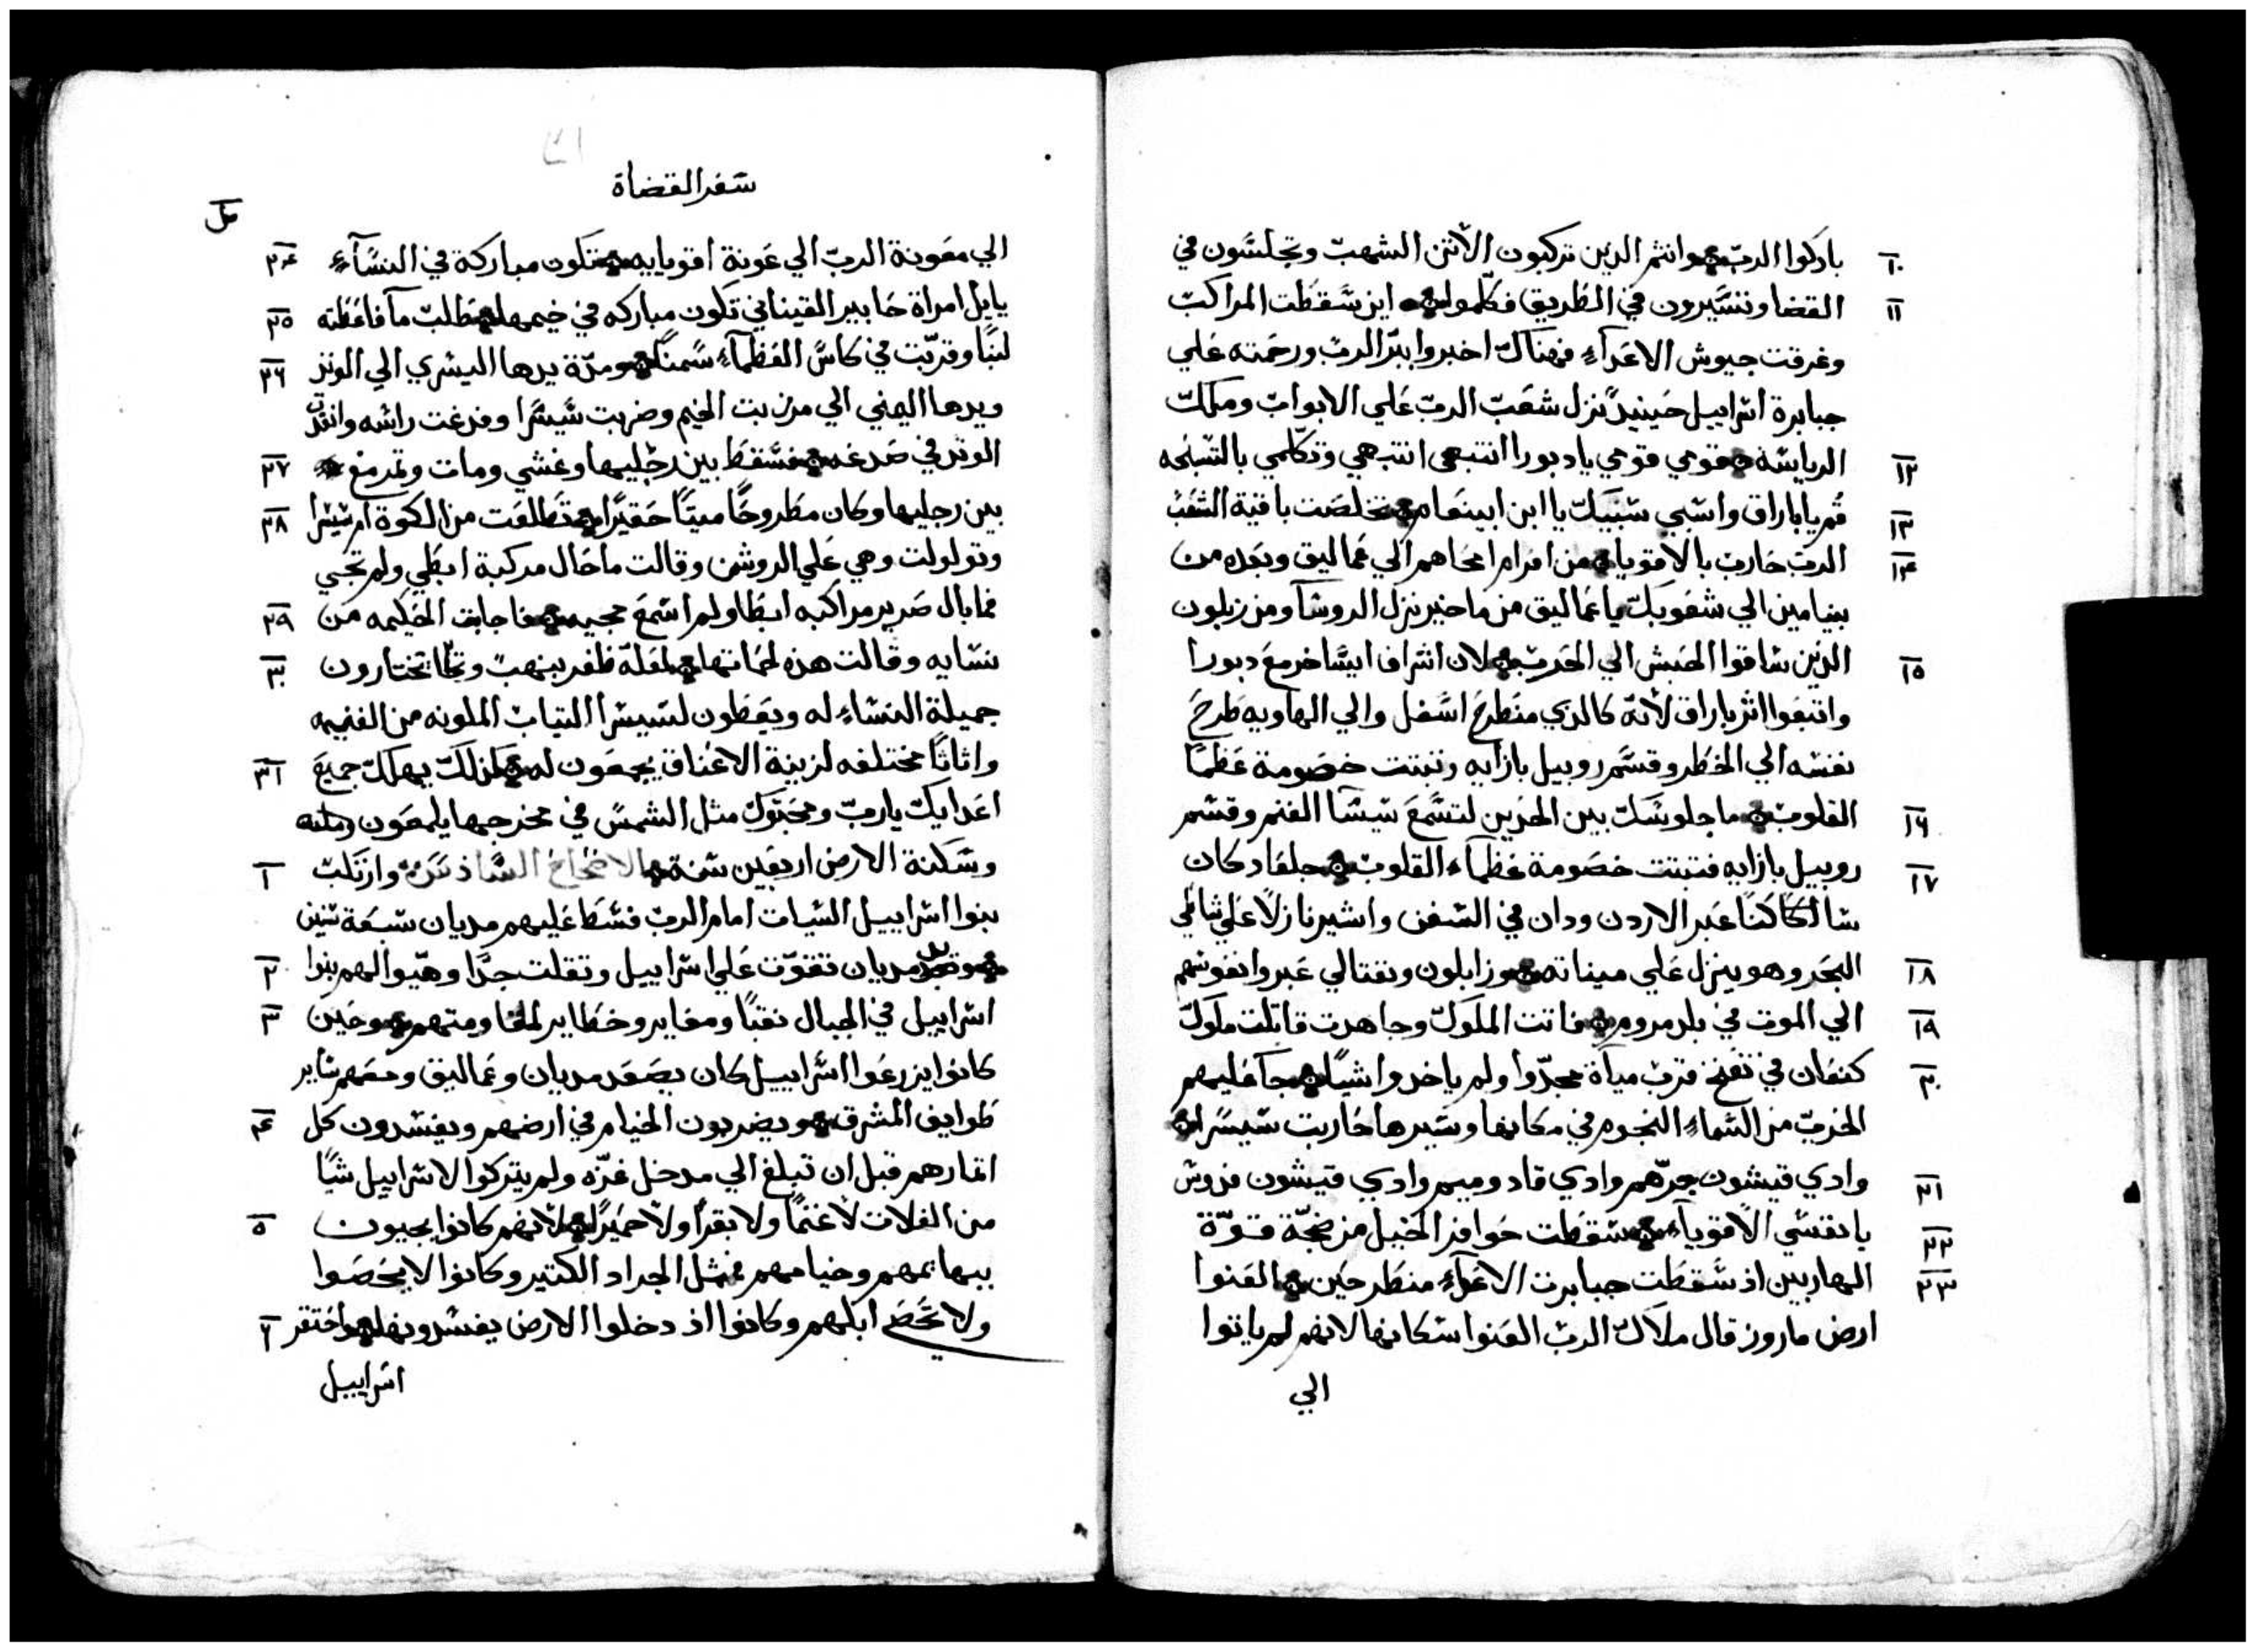 باركوا الرب وانتم الدين تركبون الاتن الشهب وتجلسون في ١٠
القضا وتنسيرون في الطريق فكلموا اين سقطت المراكب ١١
وغرقت جيوش الاعدآء فهناك اخبروا ببر الرب ورحمته علي
جبابرة اسراييل حينيدً نزل شعب الرب علي الابواب وملك
الرياسه قومي قومي يا دبورا انتبهي انتبهي وتكلمي بالتسبحه ١٢
قم يا باراق واسبي سبيك يا ابن ابينعام تخلصت باقية الشعب ١٣
الرب حارب بالاقويا من افرام امحاهم الي عماليق وبعده من ١٤
بنيامين الي شعوبك يا عماليق من ماخير نزل الروسآ ومن زبلون
الدين ساقوا الجيش الي الحرب لان اشراف ايساخر مع دبورا ١٥
واتبعوا اثر باراق لانه كالدي منطرح اسفل والي الهاويه طرح
نفسه الي الخطر وقسم روبيل بازايه وتبتت خصومة عظما
القلوب ما جلوسك بين الحدين لتسمع سيسا الغنم وقسم ١٦
روبيل بازايه فتبتت خصومة عظمآء القلوب جلعاد كان ١٧
ساكنًا عبر الاردن ودان في السفن واشير نازلًا علي شاطي
البحر وهو ينزل علي ميناته وزابلون ونفتالي عبروا نفوسهم ١٨
الي الموت في بلد مروم فاتت الملوك وجاهدت قاتلت ملوك ١٩
كنعان في تعنخ قرب مياة مجدّوا ولم ياخدوا شيًا جآ عليهم ٢٠
الحرب من السماء النجوم في مكانها وسيرها حاربت سيسرا
وادي قيشون جرّهم وادي قادوميم وادي قيشون فدوس ٢١
يا نفسي الاقويا سقطت حوافر الخيل من ضجّة قوّة ٢٢
الهاربين اذ سقطت جبابرت الاعدآء منطرحين العنوا ٢٣
ارض ماروز قال ملاك الرب العنوا سكانها لانهم لم ياتوا
الي
سفر القضاة
الي معونة الرب الي عونة اقويايه تكون مباركة في النسآء ٢٤
يايل امراة حابير القيناني تكون مباركه في خيمها طلب مآ فاعطته ٢٥
لبنًا وقربت في كاس العظمآء سمنًا ومدّة يدها اليسري الي الوتد ٢٦
ويدها اليمني الي مرزبت الخيم وضربت سيسرا وفدغت راسه وانفد
الوتد في صدغه فسقط بين رجليها وغشي ومات وتمرمغ ٢٧
بين رجليها وكان مطروحًا ميتًا حقيرًا تطالعت من الكوة ام سيسرا ٢٨
وتولولت وهي علي الروشن وقالت ما خال مركبة ابطي ولم تجي
فما بال صرير مراكبه ابطا ولم اسمع مجيه فاجابت الحكيمه من ٢٩
نسايه وقالت هذه لحماتها لعله ظفر بنهب تختارون ٣٠
جميلة النساء له ويعطون لسيسرا التياب الملونه من الغنيمه
واثاثًا مختلفه لزينة الاعناق يجمعون له كذلك يهلك جميع ٣١
اعدايك يارب ومحبوك مثل الشمس في مخرجها يلمعون
وسكنة الارض اربعين سنة الاصحاح السادس وارتكبت ١
بنوا اسراييل السيات امام الرب فسط عليهم مديان سبعة سنين
مديان تقوّت علي اسراييل وتقلت جدًا وهيوا لهم بنوا ٢
اسراييل في الجبال نقبًا ومغاير وخطاير لمقاومتهم وحين ٣
كانوا يزرعوا اسراييل كان يصعد مديان وعماليق ومعهم ساير
طوايف المشرق ويضربون الخيام في ارضهم ويفسدون كل ٤
اتمارهم قبل ان تبلغ الي مدخل غزّه ولم يتركوا لاسراييل شيًا
من الغلات لا غنمًا ولا بقرًا ولا حميرًا لانهم كانوا يجيون ٥
ببهايمهم وخيامهم بمثل الجراد الكتير وكانوا لا يحصوا
ولا تحصي ابلهم وكانوا اذ دخلوا الارض يفسدونها واختقر ٦
اسراييل